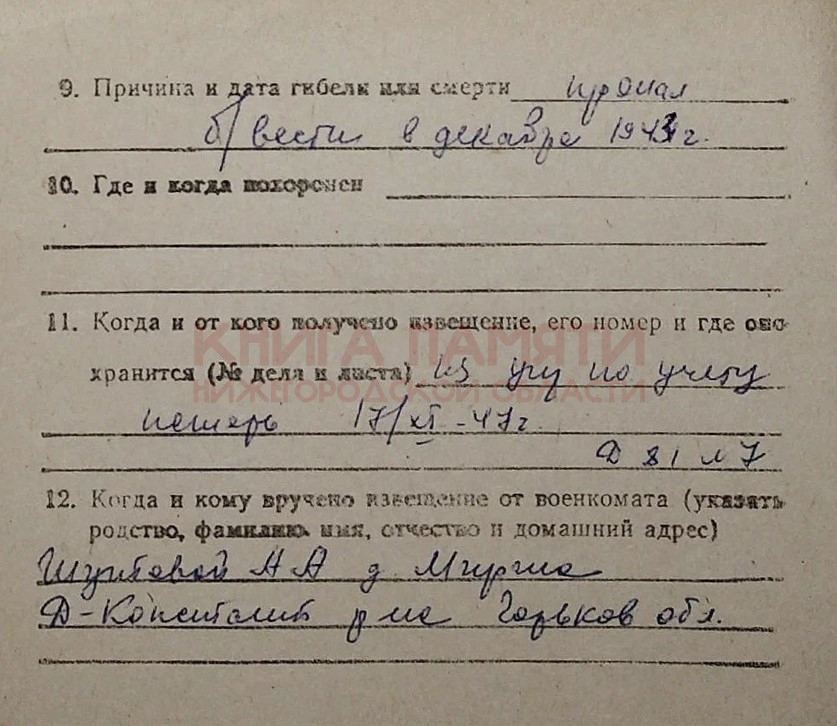 9. Причина и дата гибели или смерти пропал
б/вести в декабре 194 г.
10. Где и когда похоронен
11. Когда и от кого получено извещение, его номер и где оно
хранится (№ дела и листа) из упр по учету
потерь 17/XI-47г.
Д 81 л 7
12. Когда и кому вручено извещение от военкомата (указать
родство, фамилию, имя, отчество и домашний адрес)
А А д.
Д-Константин р-на Горьков обл.
КНИГА ПАМЯТИ
НИЖЕГОРОДСКОЙ ОБЛАСТИ